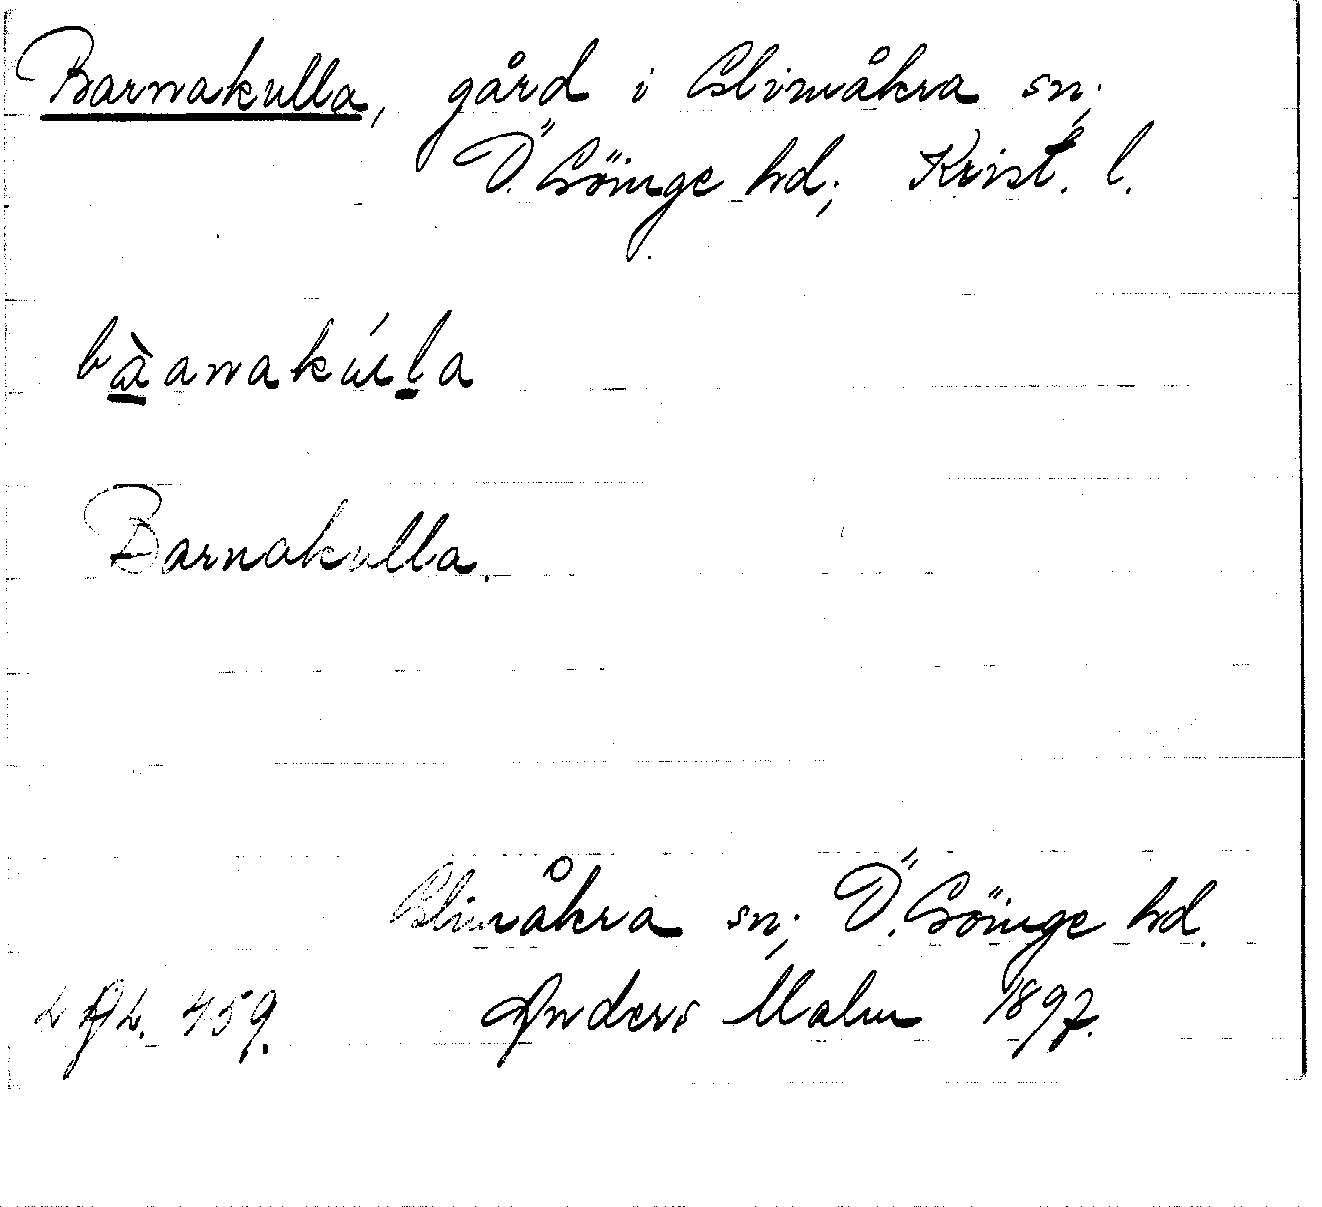 Barnakulla, gård i Glimåkra sn;
Ö. Göinge hd; Krist. l.
bàanakúlla
Barnakulla.
Glimåkra sn; Ö. Göinge hd.
459. Anders Malm 1897.